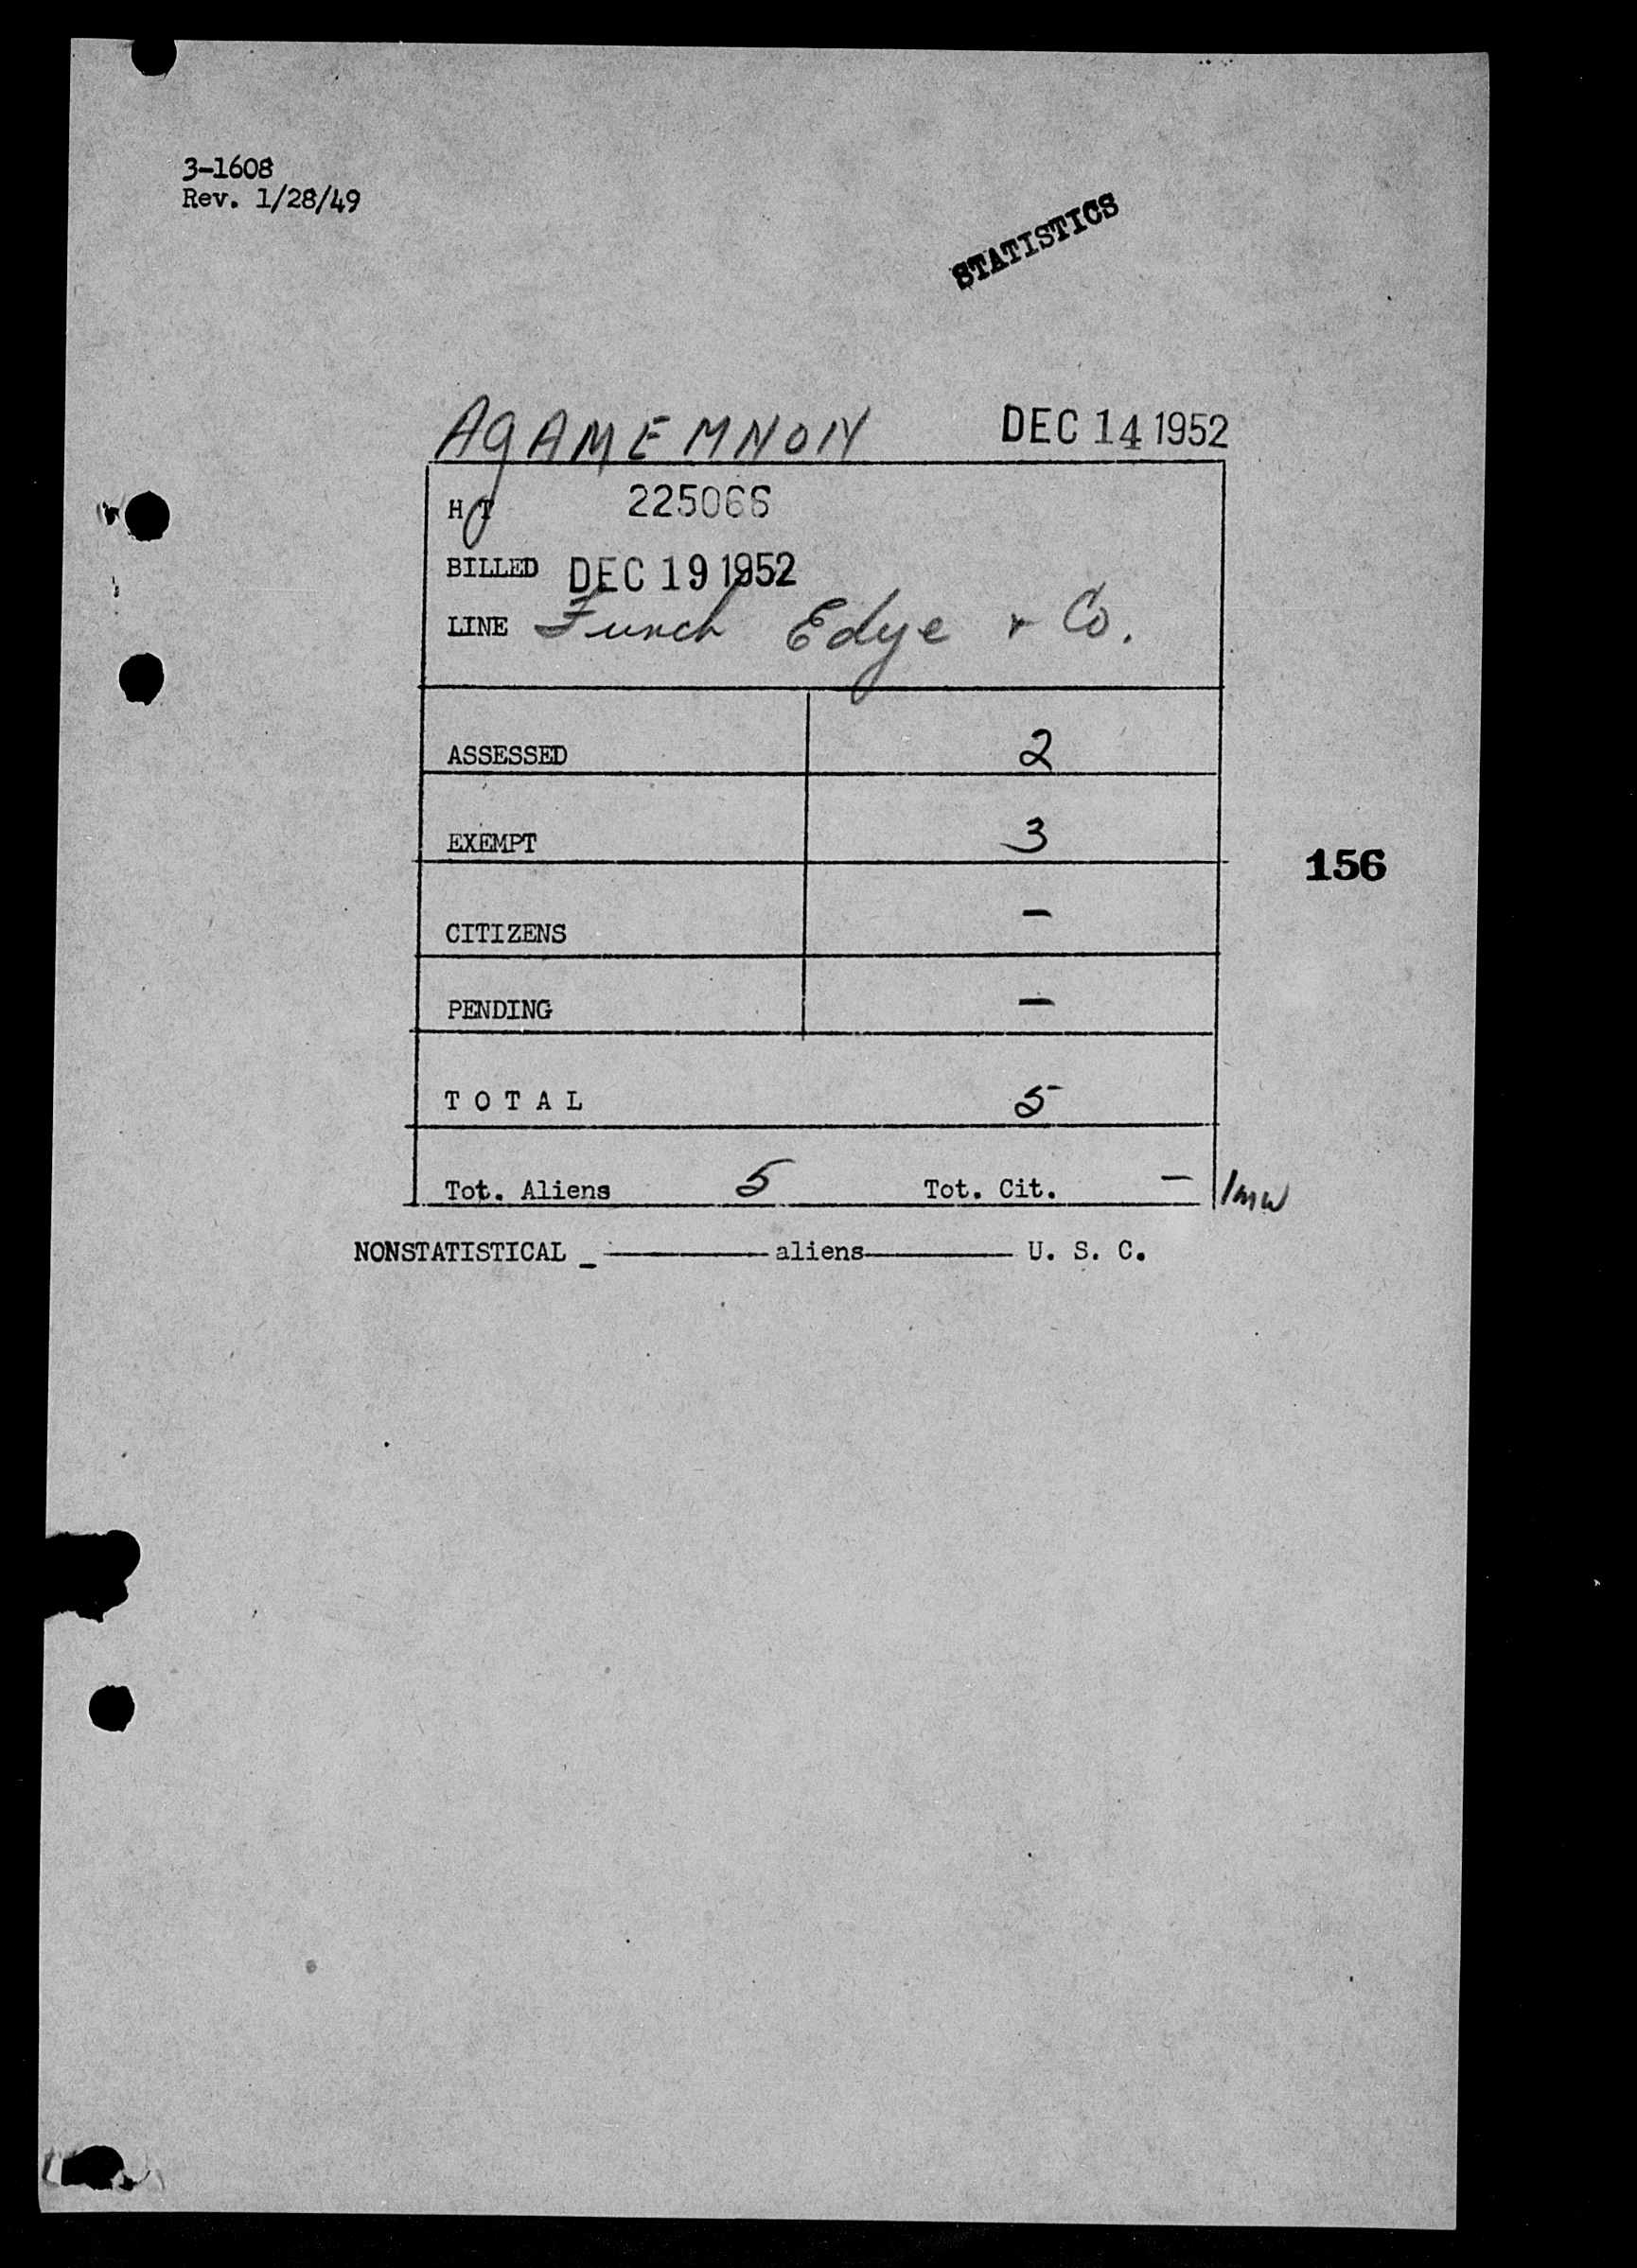 3-1608
Rev. 1/28/49
STATISTICS
AGAMEMNON DEC 14 1952
HT 225066
BILLED DEC 19 1952
LINE Funch Edye & Co.
ASSESSED 2
EXEMPT 3
156
CITIZENS -
PENDING -
TOTAL 5
Tot. Aliens 5 Tot. Cit. - /mw
NONSTATISTICAL _ ———— aliens———— U. S. C.